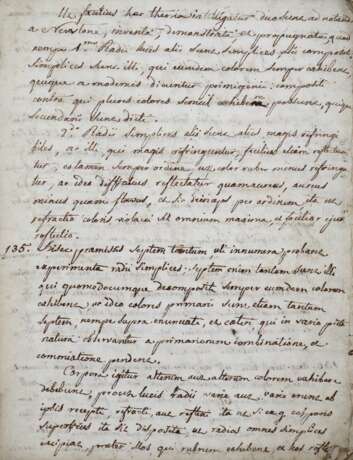 Ut facilius hæc theoria intelligatur duo sunt ac notanda
a Newtone, inventa, demonstrata et propugnata, quorum
nempe 1.mo Radii lucis alii sunt simplices alii compositi
simplices sunt illi, qui eundem colorem semper exhibent,
quique a modernis dicuntur primigenii: compositi
contra qui plures colores simul exhibere possunt, quique
secundarii sunt dicti.
2.do Radii simplices alii sunt aliis magis refringi
biles, ac illi, qui magis refringuntur, facilius etiam reflectun
tur, et tamen semper ordine, ut color ruber minus refringa
tur, ac ideo difficilius reflectatur quam aureus, aureus
minus quam flavus, et sic deinceps per ordinem ita ut
refractio coloris violacei sit omnium maxima, et facilior ejus
reflectio.
135. Hisce præmissis septem tantum ut innumera probant
experimenta radii simplices septem enim tantum sunt illi
qui quomodocumque decompositi semper eumdem colorem
exhibent, ac ideo colores primarii sunt etiam tantum
septem, nempe supra enunciati, et cæteri qui in varia parte
naturæ observantur a primariorum combinatione, et
commixtione pendent.
Corpora igitur alterum aut alterum colorem exhibere
debebunt, prout lucis radii varie aut varii erunt ab
ipsis recepti refracti, aut reflexi ita ut si ex. g. corporis
superficies ita sit disposita ut radios omnes simplices
recipiat præter illos qui rubrum exhibent et hos refle